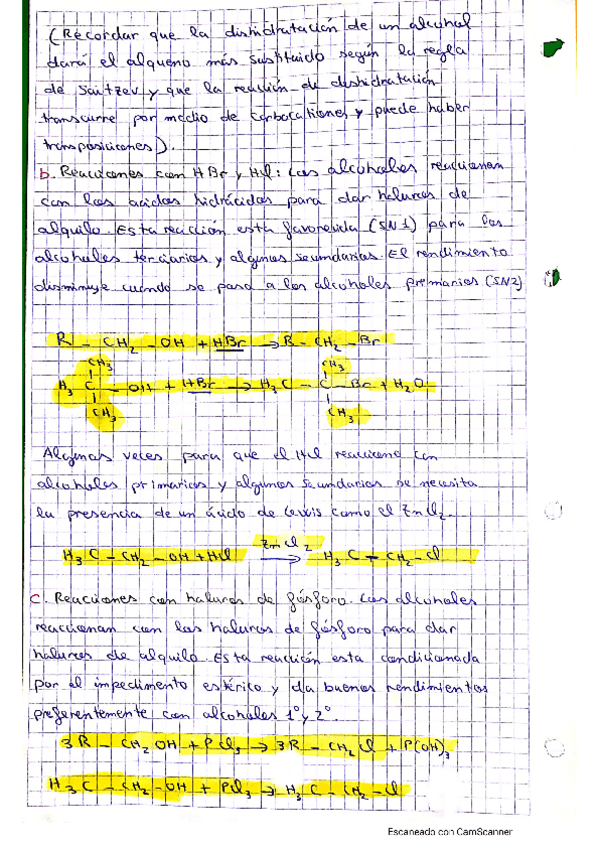 (Recordar que la dishidratación de un alcohol
dará el alqueno más sustituido según la regla
de Saitzev y que la reacción de dishidratación
transcurre por medio de carbocationes y puede haber
transposiciones).
b. Reacciones con HBr y HCl: Los alcoholes reaccionan
con los ácidos hidrácidos para dar haluros de
alquilo. Esta reacción esta favorecida (SN1) para los
alcoholes terciarios y algunos secundarios. El rendimiento
disminuye cuando se pasa a los alcoholes primarios (SN2)
R - CH2 - OH + HBr → R - CH2 - Br
CH3 CH3
H3 C - OH + HBr → H3C - C - Br + H2O
CH3 CH3
Algunas veces para que el HCl reaccione con
alcoholes primarios y algunos secundarios se necesita
la presencia de un ácido de Lewis como el ZnCl2.
ZnCl2
H3C - CH2 - OH + HCl → H3C - CH2 - Cl
c. Reacciones con haluros de fósforo. Los alcoholes
reaccionan con los haluros de fósforo para dar
haluros de alquilo. Esta reacción esta condicionada
por el impedimento estérico y da buenos rendimientos
preferentemente con alcoholes 1º y 2º.
3R - CH2OH + PCl3 → 3R - CH2Cl + P(OH)3
H3C - CH2 - OH + PCl3 → H3C - CH2 - Cl
Escaneado con CamScanner